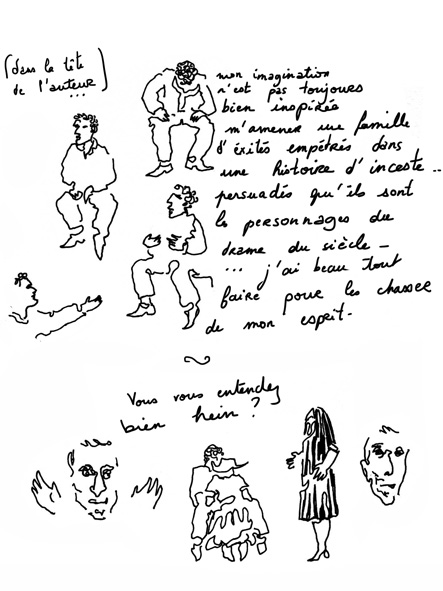 (dans la tête
de l'auteur)
...
mon imagination
n'est pas toujours
bien inspirée
m'amener une famille
d'exités empêtrés dans
une histoire d'inceste...
persuadés qu'ils sont
les personnages du
drame du siècle -
... j'ai beau tout
faire pour les chasser
de mon esprit -
Vous vous entendez
bien hein ?